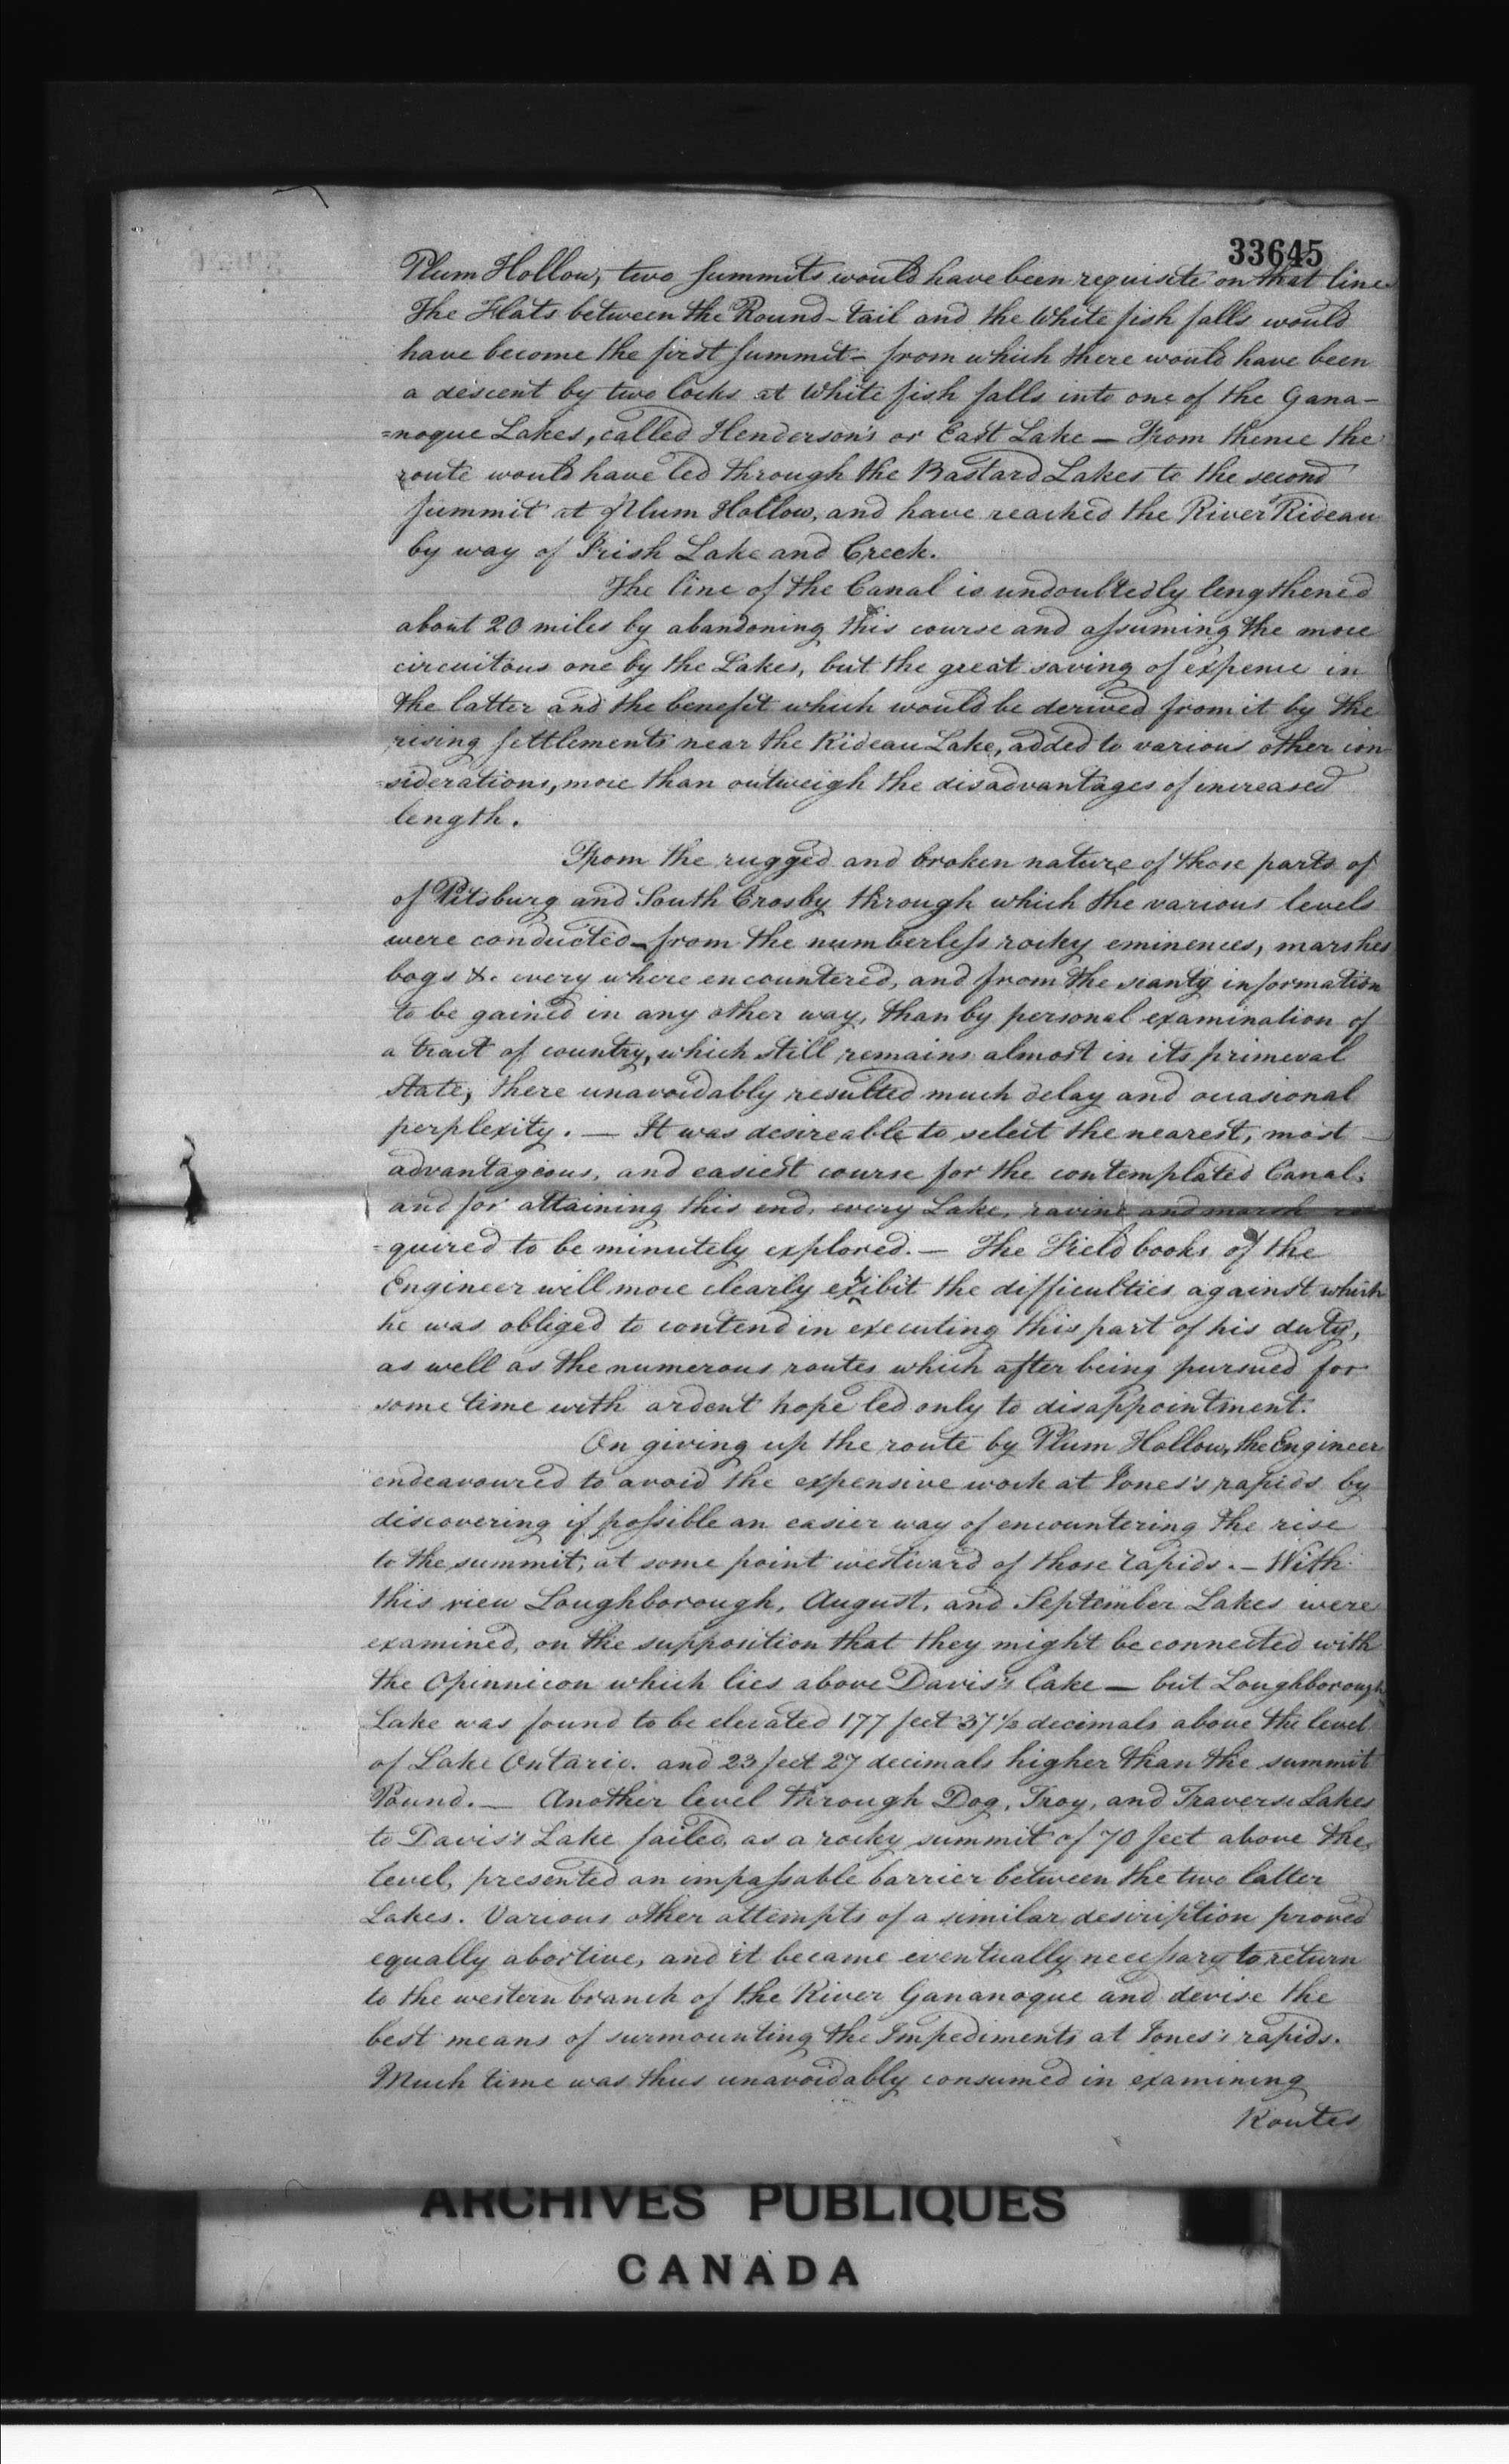 33645
Plum Hollow, two Summits would have been requisite on that line
The Flats between the Round-tail and the White fish falls would
have become the first Summit - from which there would have been
a descent by two locks at White fish falls into one of the Gana-
=noque Lakes, called Henderson's or East Lake — From thence the
route would have led through the Bastard Lakes to the second
Summit at Plum Hollow, and have reached the River Rideau
by way of Irish Lake and Creek.
The line of the Canal is undoubtedly lengthened
about 20 miles by abandoning this course and assuming the more
circuitous one by the Lakes, but the great saving of expence in
the latter and the benefit which would be derived from it by the
rising settlements near the Rideau Lake, added to various other con
=siderations, more than outweigh the disadvantages of increased
length.
From the rugged and broken nature of those parts of
of Pitsburg and South Crosby through which the various levels
were conducted - from the numberless rocky eminences, marshes
bogs &c. every where encountered, and from the scanty information
to be gained in any other way, than by personal examination of
a tract of country, which still remains almost in its primeval
state, there unavoidably resulted much delay and occasional
perplexity. — It was desireable to select the nearest, most
advantageous, and easiest course for the contemplated Canal;
and for attaining this end, every Lake, ravine and marsh re
=quired to be minutely explored. — The Field books of the
Engineer will more clearly exhibit the difficulties against which
he was obliged to contend in executing this part of his duty,
as well as the numerous routes which after being pursued for
some time with ardent hope led only to disappointment.
On giving up the route by Plum Hollow, the Engineer
endeavoured to avoid the expensive work at Jones's rapids by
discovering if possible an easier way of encountering the rise
to the summit, at some point westward of those rapids. — With
this view Loughborough, August, and September Lakes were
examined, on the supposition that they might be connected with
the Opinnicon which lies above Davis's Lake — but Loughborough
Lake was found to be elevated 177 feet 37½ decimals above the level
of Lake Ontario. and 23 feet 27 decimals higher than the summit
Pound. — Another level through Dog, Troy, and Traverse Lakes
to Davis's Lake failed, as a rocky summit of 70 feet above the
level, presented an impassable barrier between the two latter
Lakes. Various other attempts of a similar description proved
equally abortive, and it became eventually necessary to return
to the western branch of the River Gananoque and devise the
best means of surmounting the Impediments at Jones's rapids.
Much time was thus unavoidably consumed in examining
Routes
ARCHIVES PUBLIQUES
CANADA